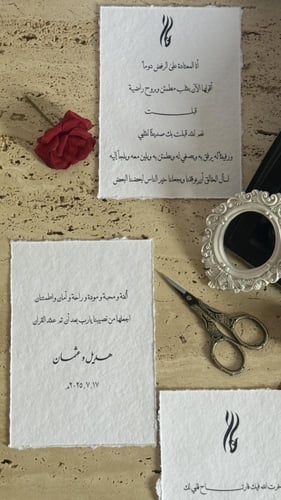 أنا المعتادة على الرفض دوماً
أقولها الآن بقلب مطمئن وروح راضية
قبلت
نعم لقد قبلت بك صديقاً لقلبي
ورفيقاً له يرفق به ويصغي له ويطمئن به ويلين معه ويلجأ إليه
نسأل الخالق أن يوفقنا ويجعلنا خير الناس لبعضنا البعض
ألفة و محبة و مودة و راحة و أمان و اطمئنان
اجعلها من نصيبنا يارب بعد أن تم عقد القران
هديل و عثمان
٢٠٢٥,٧,١٧م
الله فيك
قلبي لك